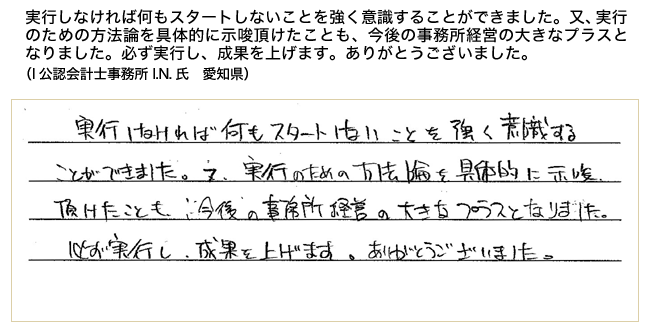 実行しなければ何もスタートしないことを強く意識することができました。又、実行
のための方法論を具体的に示唆頂けたことも、今後の事務所経営の大きなプラスと
なりました。必ず実行し、成果を上げます。ありがとうございました。
（I 公認会計士事務所 I.N. 氏　愛知県）
実行しなければ何もスタートしないことを強く意識する
ことができました。又、実行のための方法論を具体的に示唆
頂けたことも、今後の事務所経営の大きなプラスとなりました。
必ず実行し、成果を上げます。ありがとうございました。